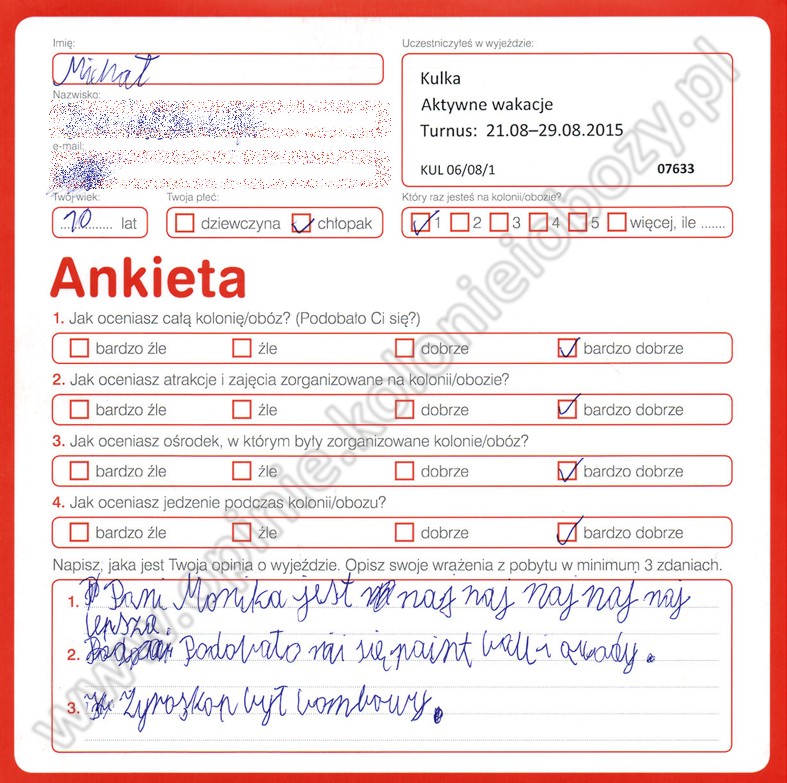 Imię:
Michał
Nazwisko:
e-mail:
Twój wiek:
10 lat
Twoja płeć:
dziewczyna chłopak
Uczestniczyłeś w wyjeździe:
Kulka
Aktywne wakacje
Turnus: 21.08–29.08.2015
KUL 06/08/1 07633
Który raz jesteś na kolonii/obozie?
1 2 3 4 5 więcej, ile .......
Ankieta
1. Jak oceniasz całą kolonię/obóz? (Podobało Ci się?)
bardzo źle źle dobrze bardzo dobrze
2. Jak oceniasz atrakcje i zajęcia zorganizowane na kolonii/obozie?
bardzo źle źle dobrze bardzo dobrze
3. Jak oceniasz ośrodek, w którym były zorganizowane kolonie/obóz?
bardzo źle źle dobrze bardzo dobrze
4. Jak oceniasz jedzenie podczas kolonii/obozu?
bardzo źle źle dobrze bardzo dobrze
Napisz, jaka jest Twoja opinia o wyjeździe. Opisz swoje wrażenia z pobytu w minimum 3 zdaniach.
1. Pani Monika jest naj naj naj naj naj
lepsza.
2. Podobało mi się paint ball i
3. Żyroskop był bombowy.
www.opinie.kolonieiobozy.pl